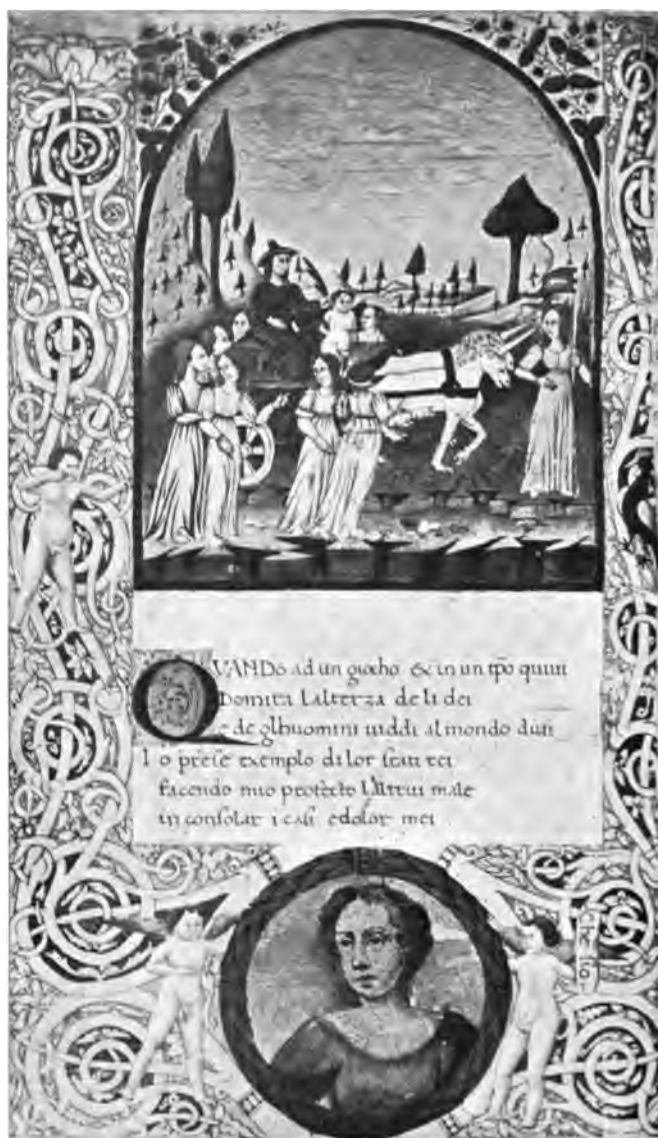 QVANDO ad un giocho & in un tpo quiui
Domita lalterza de li dei
e de glhuomini uiddi al mondo diui
I o prese exemplo di lor stati rei
facendo mio profecto laltrui male
in consolar i casi e dolor mei